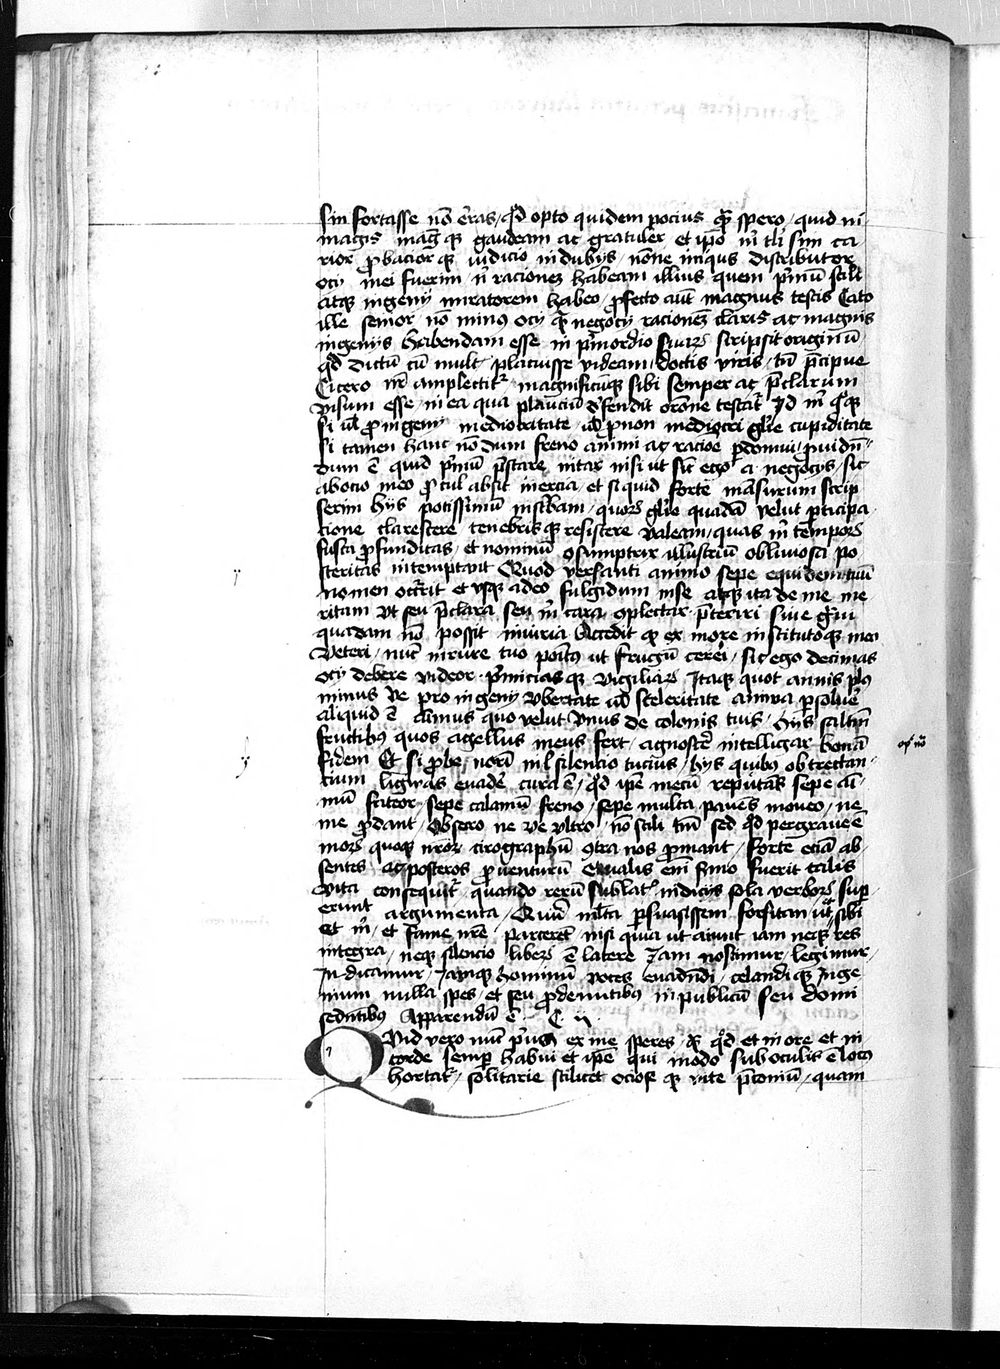 Sin fortasse nō erras / qd opto quidem pocius qm spero / quid ni
magis magisqz gaudeam ac gratuler et ipō m tibi sim ca
rior probaciorqz iudicio indubijs / nonne iniqus distributor
ocij mei fuerim / ni racionem habeam illius quem primū stili
atqz ingenij miratorem habeo / profecto aūt magnus testis Cato
ille senior nō minus ocij qm negocij racionem claris ac magnis
ingenijs habendam esse in primordio suarum scripsit originū
qd dictū cū mult placuisse videam / doctis viris / tū precipue
Cicero nr̄ amplectitur magnificūqz sibi semper ac preclarum
visum esse / in ea qua plancium defendit orōne testatur Id m quoqz
si ul pro ingenij mediocritate ul pro non mediocri glīe cupiditate
si tamen hanc nōdum freno animi ac racioē perdomui / prouiden
dum ē quid primū prestare nitar nisi ut sic ego a negocijs / sic
ab ocio meo procul absit inercia / et si quid forte mansurum scrip
serim hijs potissimū inscribam / quorum glīe quadā velut participa
cione clarescere / tenebrisqz resistere valeam / quas m temporum
fusca profunditas / et nominū consumptrix illustriū obliuiosa po
steritas intemptant Quod versanti animo sepe equidem tuū
nomen occurrit et vsqz adeo fulgidum in se atqz ita de me me
ritum vt seu preclara seu m cara complectar / preteriri siue graui
quadam nō possit iniuria Accedit qz ex more institutoqz meo
veteri / nunc in rure tuo positus ut frugū cereri / sic ego decimas
ocij debere videor primiciasqz vigiliarum Itaqz quot annis plus
minus ve pro ingenij vbertate ul sceleritate animā persoluere
aliquid ē animus quo velut vnus de colonis tuis / hijs saltim
fructibus quos agellus meus fert / agnoscere intelligar bonā
fidem Et si probe norim nil silencio tucius / hijs quibus obtrectan
cium linguas euadere cura ē / qd ipe mecū reputās sepe ani
mū frateor / sepe calamū freno / sepe multa pauens moueo / ne
me prodant / Obsero ne ve vltro / nō stili tm̄ sed qd pergraue ē
morum quoqz nrorum cirographū contra nos promant / forte eciā ab
sentes ac posteros peruenturū Equalis enī sermo fuerit talis
vita consequitur / quando rerū sublatis indicijs sola verborum super
erunt argumenta / Quietem multa persuasissem forsitan ut sibi
et m / et fame nrē / parceret / nisi quia ut aiunt iam neqz res
integra / neqz silencio liberum ē latere Iam noscimur / legimur /
Iudicamur / Iamqz hominū voces euadendi / celandiqz Inge
nium nulla spes / et seu prodeuntibus in publicū seu domi
sedentibus Apparendū ē C
Quid vero nunc prius ex me speres / qm qd et in ore et in
corde semper habui et ipe qui modo sub oculis ē locus
hortatur / solitarie scilicet ocioseqz vite preconiū / quam